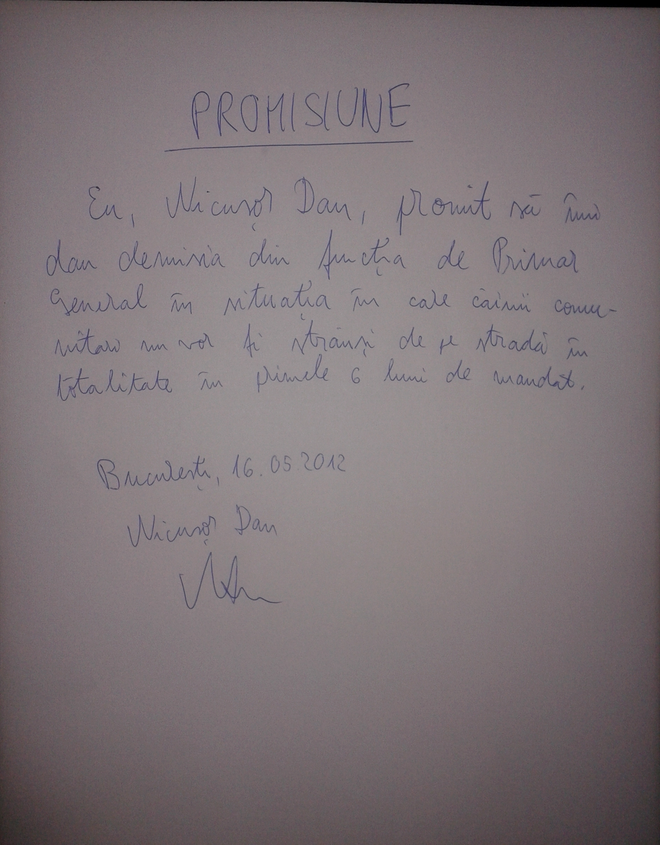 PROMISIUNE
Eu, Nicușor Dan, promit să îmi
dau demisia din funcția de Primar
General în situația în care câinii comu-
nitari nu vor fi strânși de pe stradă în
totalitate în primele 6 luni de mandat.
București, 16.05.2012
Nicușor Dan